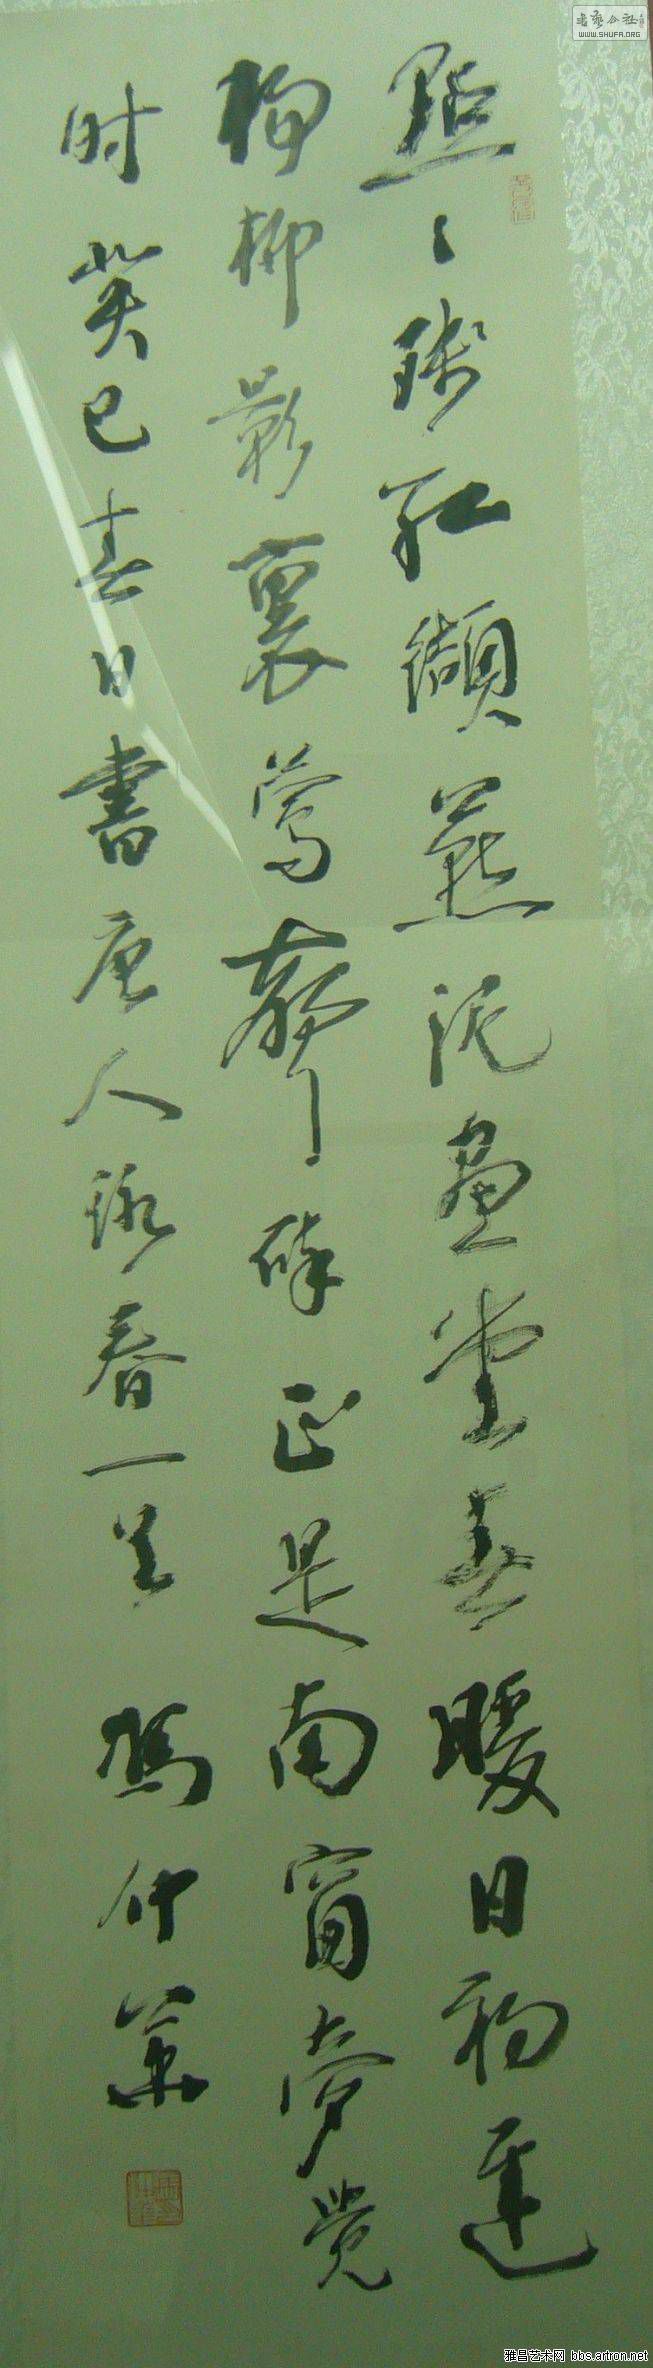 點〻殘紅纈燕泥畫堂春暖日初遲
楊柳影裏鶯聲碎正是南窗夢覺
时 癸巳春日書唐人詠春一首 馮仲
書藝公社
WWW.SHUFA.ORG
雅昌艺术网 bbs.artron.net